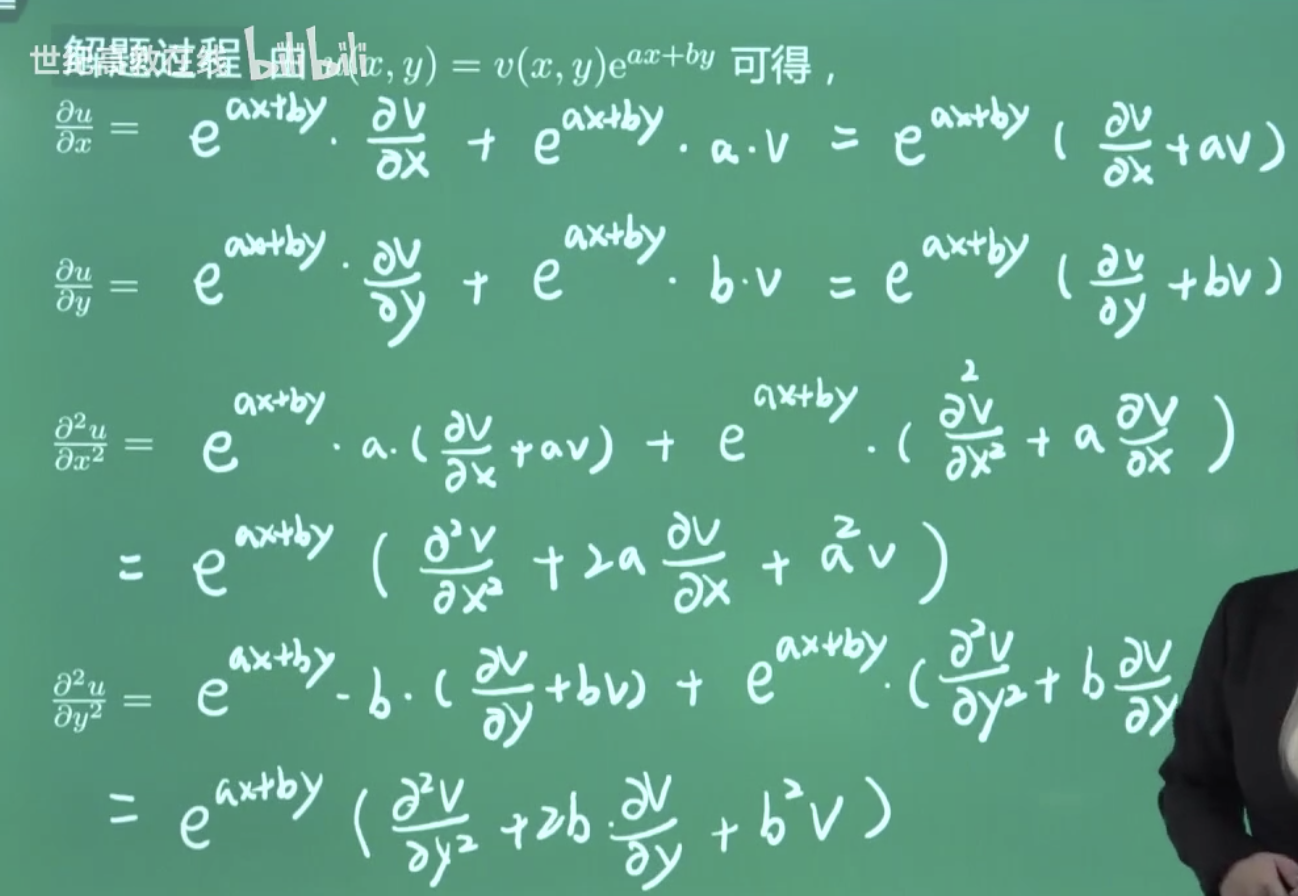 世纪高教在线 bilibili
解题过程 由 u(x, y) = v(x, y)e^{ax+by} 可得，
∂u/∂x = e^{ax+by} · ∂v/∂x + e^{ax+by} · a · v = e^{ax+by} ( ∂v/∂x + av )
∂u/∂y = e^{ax+by} · ∂v/∂y + e^{ax+by} · b · v = e^{ax+by} ( ∂v/∂y + bv )
∂²u/∂x² = e^{ax+by} · a · ( ∂v/∂x + av ) + e^{ax+by} · ( ∂²v/∂x² + a ∂v/∂x )
= e^{ax+by} ( ∂²v/∂x² + 2a ∂v/∂x + a²v )
∂²u/∂y² = e^{ax+by} · b · ( ∂v/∂y + bv ) + e^{ax+by} · ( ∂²v/∂y² + b ∂v/∂y
= e^{ax+by} ( ∂²v/∂y² + 2b · ∂v/∂y + b²v )